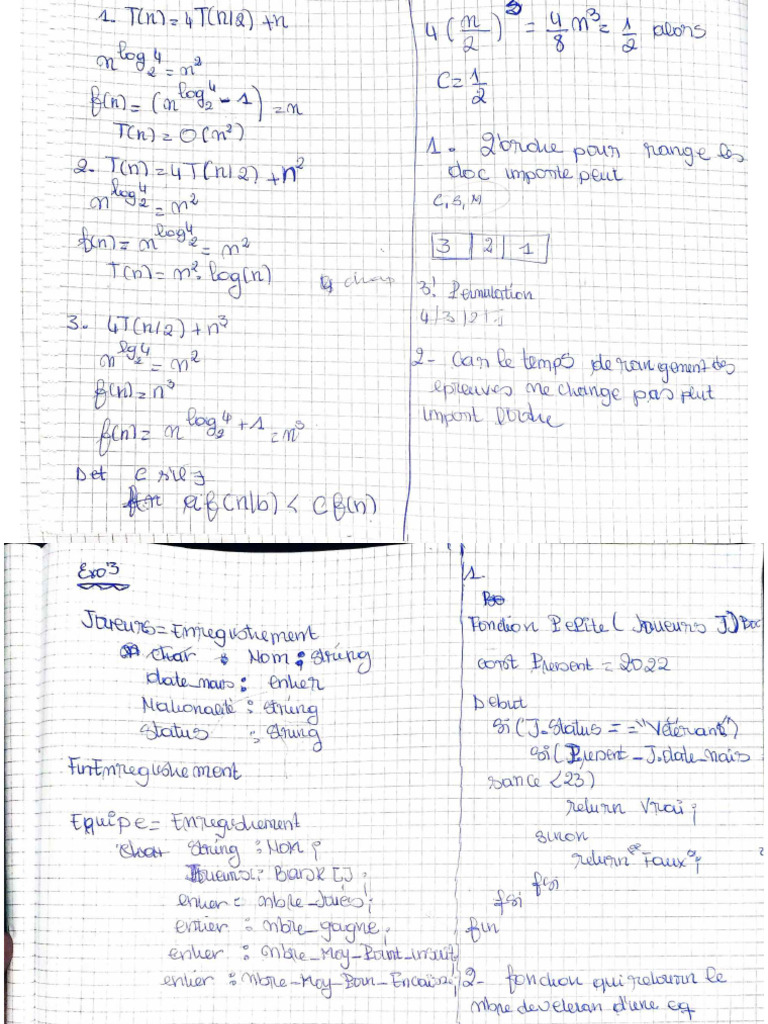 1. T(n)=4T(n/2)+n
n^log_2^4 = n^2
f(n)=(n^log_2^4 - 1)=n
T(n)=O(n^2)
2. T(n)=4T(n/2)+n^2
n^log_2^4 = n^2
f(n)=n^log_2^4 = n^2
T(n)=n^2.log(n)
3. 4T(n/2)+n^3
n^lg_2^4 = n^2
f(n)=n^3
f(n)=n^log_2^4 +1 =n^3
Det c
af(n/b) < Cf(n)
4(n/2)^3 = 4/8 n^3 = 1/2 alors
C=1/2
1. L'ordre pour range les
doc importe peut
C, S, M
3 2 1
3! Permutation
4/3/2/1
2- Car le temps de rangement des
epreuves ne change pas peut
import l'ordre
Exo3
Joueurs=Enregistrement
char Nom : string
date_nais : entier
Nationalité : string
Status : string
FinEnregistrement
Equipe= Enregistrement
string : Nom ;
Joueurs : []
entier : nbre_Joués ;
entier : nbre_gagne ;
entier : nbre_Moy_Point_inscrit
entier : nbre_Moy_Poin_Encais ;
1.
Fonction Pepite( Joueurs J) Boo
const Present = 2022
Debut
si(J.Status == "Vétérant")
si(Present - J.date_nais
sance <23)
return Vrai ;
sinon
return "Faux" ;
fsi
fsi
fin
2- fonction qui retourn le
nbre de veteran d'une eq